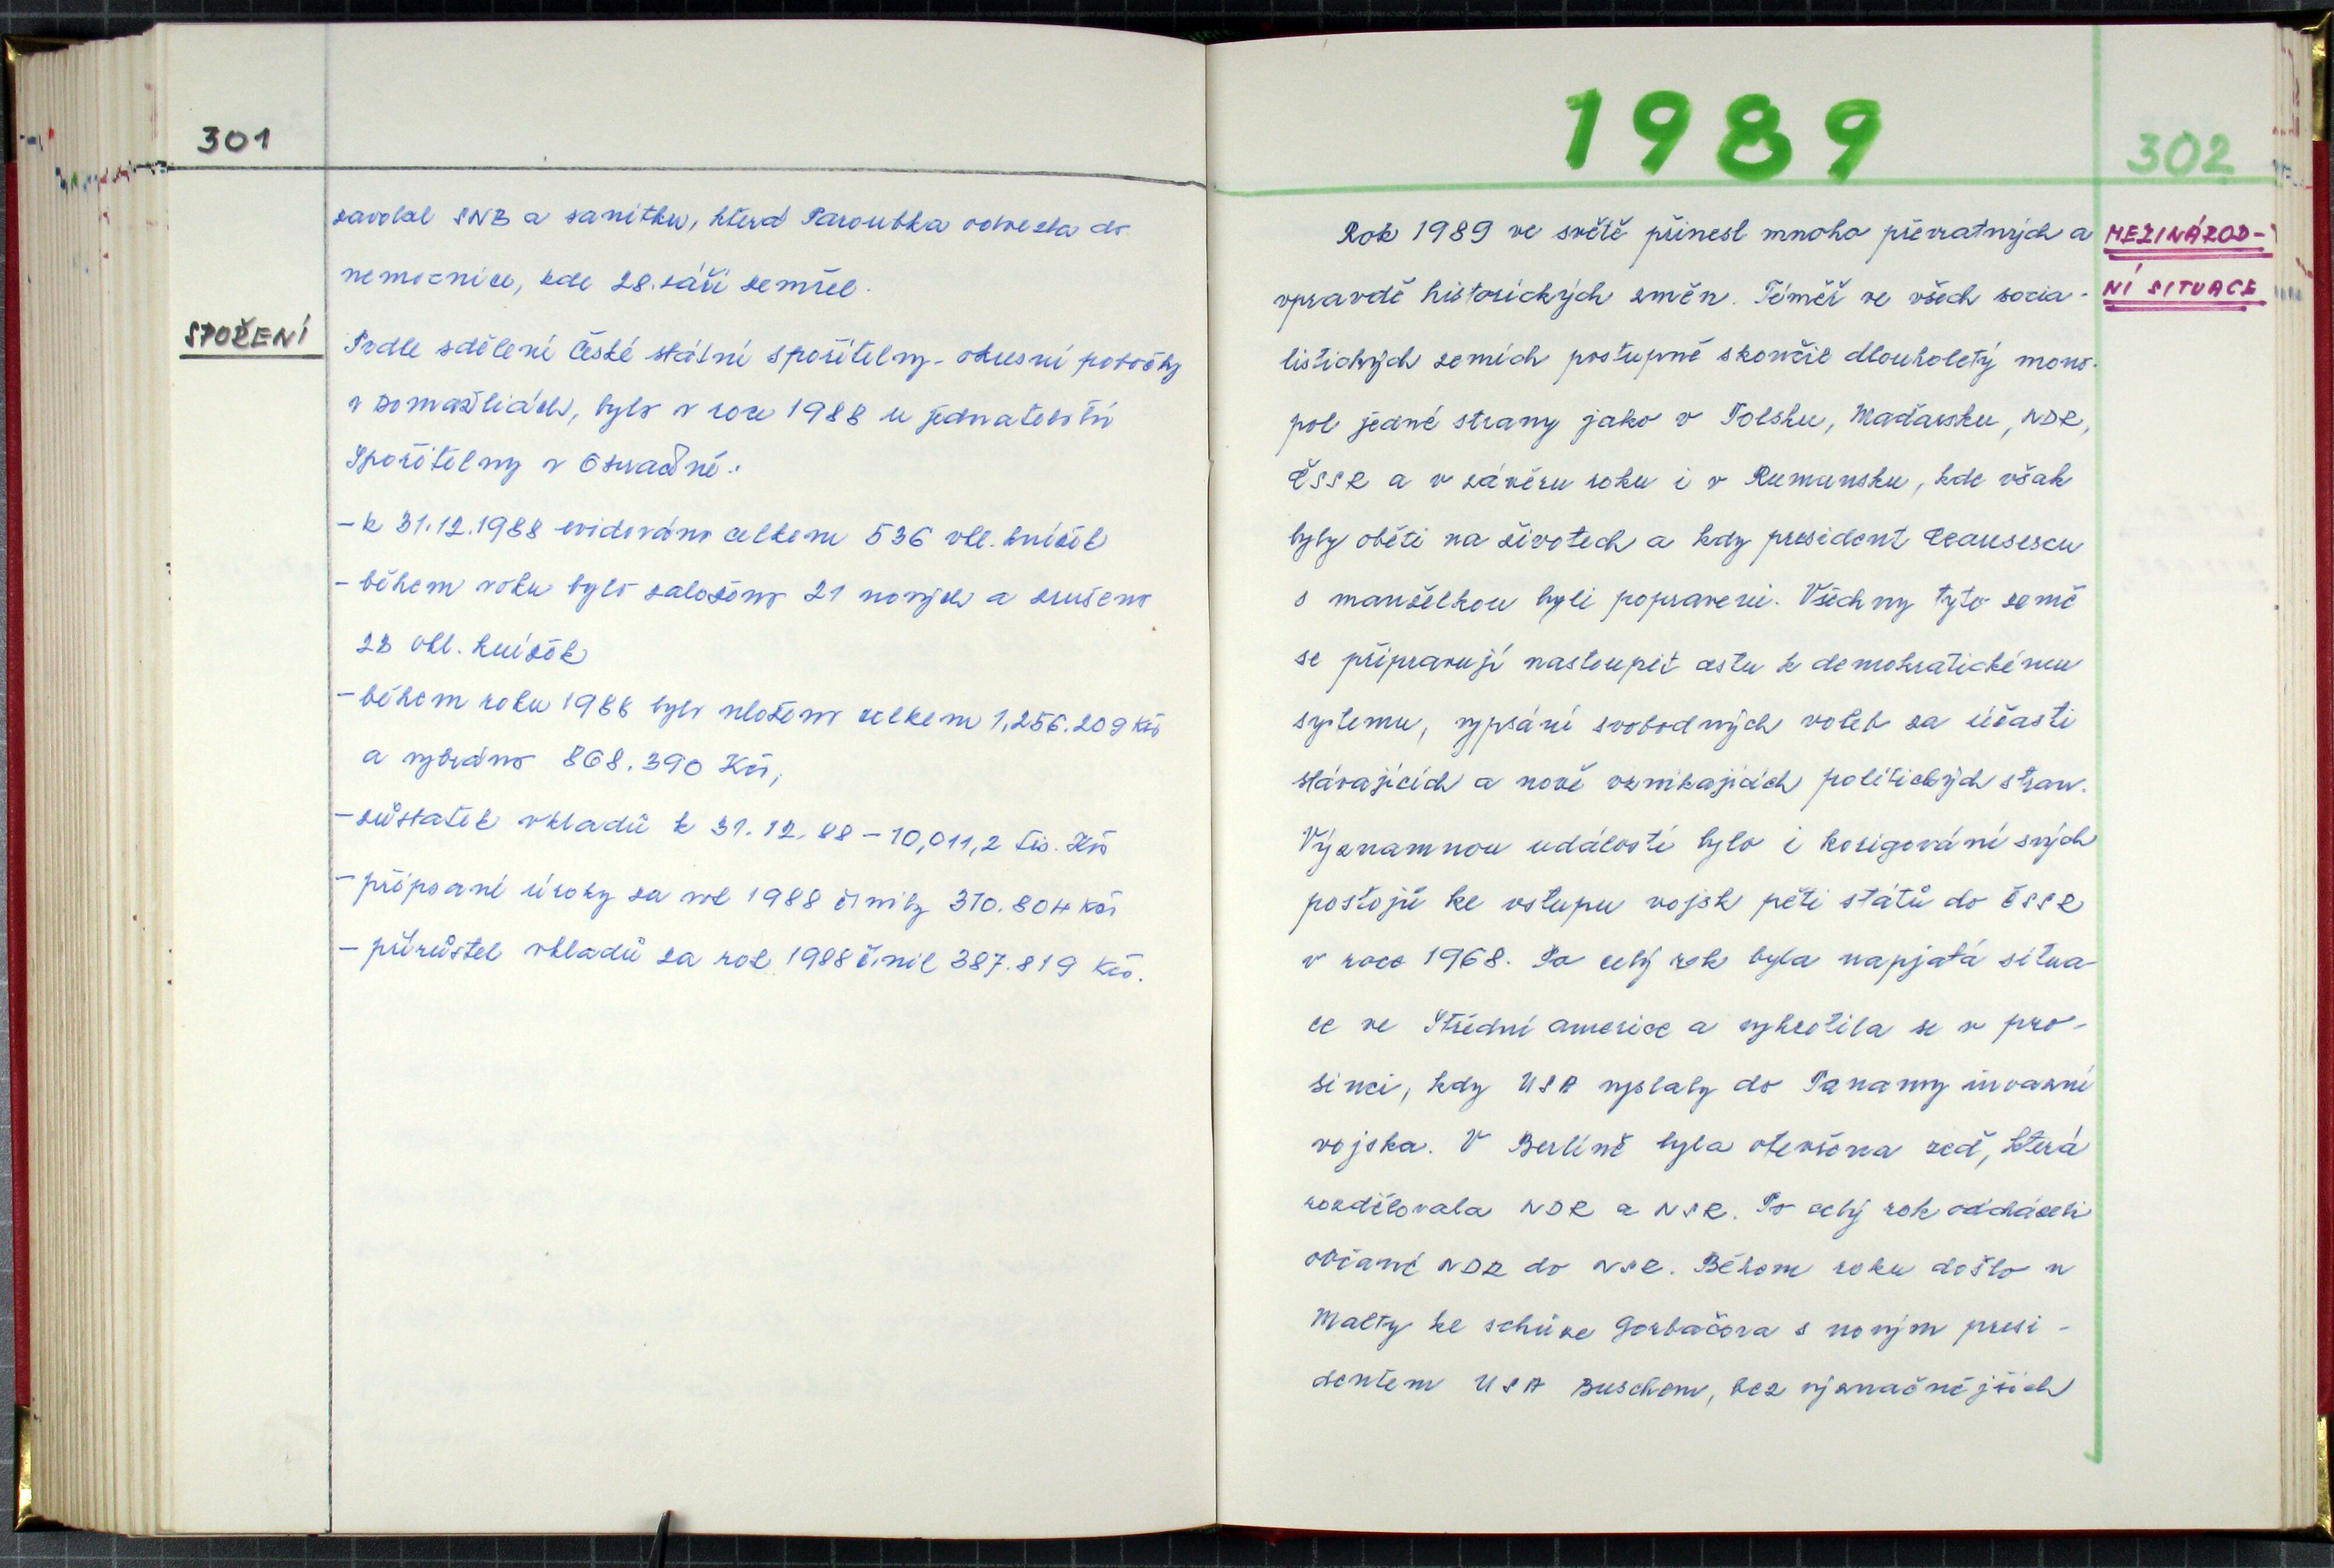 301
zavolal SNB a sanitku, která Paroubka odvezla do
nemocnice, kde 28. září zemřel.
SPOŘENÍ
Podle sdělení České státní spořitelny - okresní pobočky
v Domažlicích, bylo v roce 1988 u jednatelství
Spořitelny v Osvračíně:
- k 31.12.1988 evidováno celkem 536 vkl. knížek
- během roku bylo založeno 21 nových a zrušeno
23 vkl. knížek
- během roku 1988 bylo uloženo celkem 1,256.209 Kčs
a vybráno 868.390 Kčs,
- zůstatek vkladů k 31.12.88 - 10,011,2 tis. Kčs
- připsané úroky za rok 1988 činily 310.804 Kčs
- přírůstek vkladů za rok 1988 činil 387.819 Kčs.
1989
302
MEZINÁROD-
NÍ SITUACE
Rok 1989 ve světě přinesl mnoho převratných a
vpravdě historických změn. Téměř ve všech socia-
listických zemích postupně skončil dlouholetý mono-
pol jedné strany jako v Polsku, Maďarsku, NDR,
ČSSR a v závěru roku i v Rumunsku, kde však
byly oběti na životech a kdy president Ceausescu
s manželkou byli popraveni. Všechny tyto země
se připravují nastoupit cestu k demokratickému
systemu, vypsání svobodných voleb za účasti
stávajících a nově vznikajících politických stran.
Významnou událostí bylo i korigování svých
postojů ke vstupu vojsk pěti států do ČSSR
v roce 1968. Po celý rok byla napjatá situa-
ce ve Střední americe a vyhrotila se v pro-
sinci, kdy USA vyslaly do Panamy invazní
vojska. V Berlíně byla otevřena zeď, která
rozdělovala NDR a NSR. Po celý rok odcházeli
občané NDR do NSR. Během roku došlo u
Malty ke schůzce Gorbačova s novým presi-
dentem USA Buschem, bez význačnějších